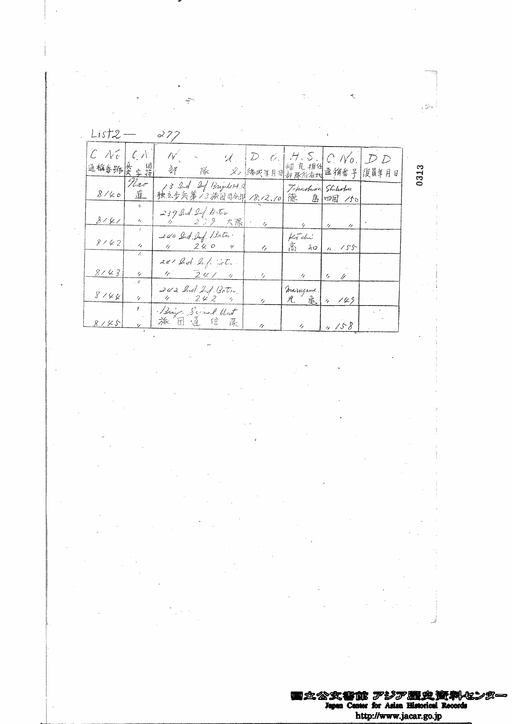 List 2 — 277
C No. C.N N. - U D. O. H. S. C. No. D D
通稱番號 部隊 編成年月日 部隊所在地 通稱番号 復員年月日
13 Ind Inf Brigade H.Q Tokushima Shikoku
8140 直 独立歩兵第13旅団司令部 18.12.10 徳島 四国 150
239 Ind Inf Batn
8141 〃 〃 239 大隊 〃 〃 〃
240 Ind Inf Batn Kochi
8142 〃 〃 240 〃 〃 高知 〃 155
241 Ind Inf
8143 〃 〃 241 〃 〃 〃 〃 〃
242 Ind Inf Batn Marugame
8144 〃 〃 242 〃 〃 丸亀 〃 149
Brig. Signal Unit
8145 〃 旅団通信隊 〃 〃 〃 158
0313
国立公文書館 アジア歴史資料センター
Japan Center for Asian Historical Records
http://www.jacar.go.jp